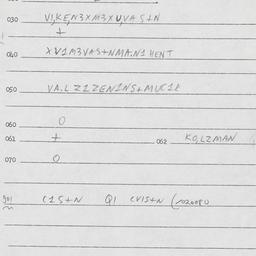 030 V1,KE,N3XM3XU,VA S+N
+
040 XV1M3VAS+NMA.N1 HENT
050 VA.LZ1ZEN1NS+MUC1K
060 O
061 + 062 KO,LZMAN
070 O
901 C1S+N Q1 CV1S+N